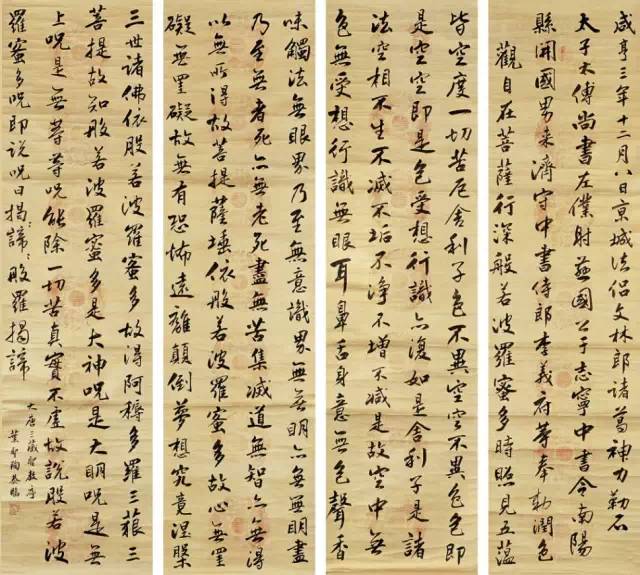 咸亨三年十二月八日京城法侣文林郎諸葛神力勒石
太子太傅尚書左僕射燕國公于志寧中書令南陽
縣開國男来濟守中書侍郎李義府等奉勑潤色
觀自在菩薩行深般若波羅蜜多時照見五藴
皆空度一切苦厄舍利子色不異空空不異色色即
是空空即是色受想行識亦復如是舍利子是諸
法空相不生不滅不垢不淨不增不減是故空中無
色無受想行識無眼耳鼻舌身意無色聲香
味觸法無眼界乃至無意識界無無明亦無無明盡
乃至無老死亦無老死盡無苦集滅道無智亦無得
以無所得故菩提薩埵依般若波羅蜜多故心無罣
礙無罣礙故無有恐怖遠離顛倒夢想究竟涅槃
三世諸佛依般若波羅蜜多故得阿耨多羅三藐三
菩提故知般若波羅蜜多是大神呪是大明呪是無
上呪是無等等呪能除一切苦真實不虛故說般若波
羅蜜多呪即說呪曰揭:諦:般羅揭諦
大唐三藏聖教序
葉聖陶恭臨